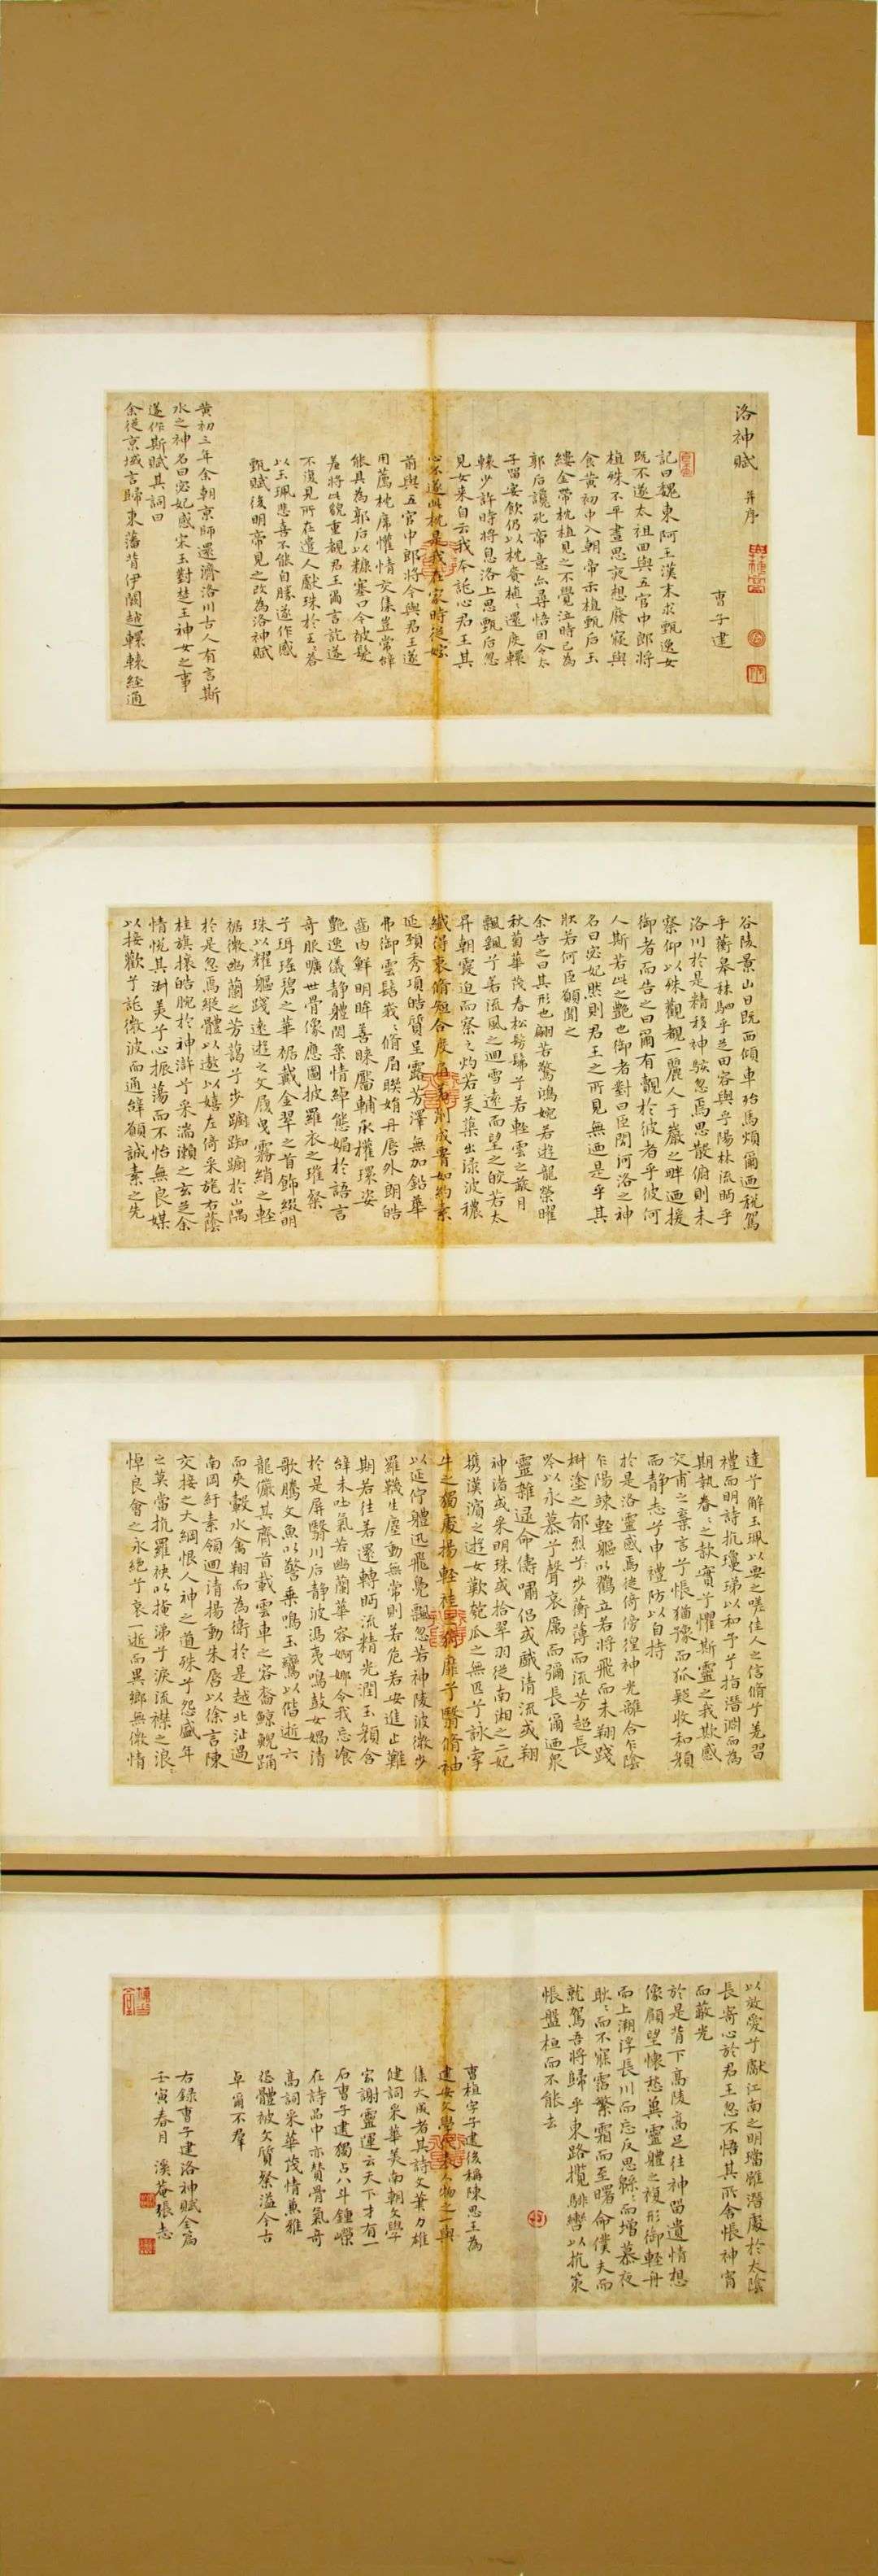 洛神賦 并序
曹子建
記曰魏東阿王漢末求甄逸女
既不遂太祖回與五官中郎將
植殊不平晝思夜想廢寢與
食黄初中入朝帝示植甄后玉
縷金帶枕植見之不覺泣時已為
郭后讒死帝意亦尋悟因令太
子留宴飲仍以枕賚植還度轘
轅少許時將息洛上思甄后忽
見女来自云我本託心君王其
心不遂此枕是我在家時從嫁
前與五官中郎將今與君王遂
用薦枕席懽情交集豈常辭
能具為郭后以糠塞口今被髮
羞將此貌重覩君王爾言訖遂
不復見所在遣人獻珠於王王荅
以玉珮悲喜不能自勝遂作感
甄賦後明帝見之改為洛神賦
黄初三年余朝京師還濟洛川古人有言斯
水之神名曰宓妃感宋玉對楚王神女之事
遂作斯賦其詞曰
余從京域言歸東藩背伊闕越轘轅經通
谷陵景山日既西傾車殆馬煩爾迺税駕
乎蘅皋秣駟乎芝田容與乎陽林流眄乎
洛川於是精移神駭忽焉思散俯則未
察仰以殊觀覩一麗人于巖之畔迺援
御者而告之曰爾有覿於彼者乎彼何
人斯若此之艷也御者對曰臣聞河洛之神
名曰宓妃然則君王之所見無迺是乎其
狀若何臣願聞之
余告之曰其形也翩若驚鴻婉若遊龍榮曜
秋菊華茂春松髣髴兮若輕雲之蔽月
飄颻兮若流風之迴雪遠而望之皎若太
昇朝霞迫而察之灼若芙蕖出渌波穠
纖得衷脩短合度肩若削成腰如約素
延頸秀項皓質呈露芳澤無加鉛華
弗御雲髻峩峩脩眉聯娟丹唇外朗皓
齒内鮮明眸善睞靨輔承權瓌姿
艷逸儀静體閑柔情綽態媚於語言
奇服曠世骨像應圖披羅衣之璀粲
兮珥瑤碧之華裾戴金翠之首飾綴明
珠以耀軀踐遠遊之文履曳霧綃之輕
裾微幽蘭之芳藹兮步踟蹰於山隅
於是忽焉縱體以遨以嬉左倚采旄右蔭
桂旗攘皓腕於神滸兮采湍瀨之玄芝余
情悦其淑美兮心振蕩而不怡無良媒
以接歡兮託微波而通辭願誠素之先
達兮解玉珮以要之嗟佳人之信脩兮羌習
禮而明詩抗瓊珶以和予兮指潛淵而為
期執眷眷之款實兮懼斯靈之我欺感
交甫之棄言兮悵猶豫而狐疑收和顔
而静志兮申禮防以自持
於是洛靈感焉徙倚傍徨神光離合乍陰
乍陽竦輕軀以鶴立若將飛而未翔踐
椒塗之郁烈兮步蘅薄而流芳超長
吟以永慕兮聲哀厲而彌長爾迺衆
靈雜遝命儔嘯侣或戲清流或翔
神渚或采明珠或拾翠羽從南湘之二妃
攜漢濱之遊女歎匏瓜之無匹兮詠牽
牛之獨處揚輕袿之猗靡兮翳脩袖
以延佇體迅飛鳧飄忽若神陵波微步
羅韈生塵動無常則若危若安進止難
期若往若還轉眄流精光潤玉顔含
辭未吐氣若幽蘭華容婀娜令我忘飡
於是屏翳川后静波馮夷鳴鼓女媧清
歌騰文魚以警乘鳴玉鸞以偕逝六
龍儼其齊首載雲車之容裔鯨鯢踊
而夾轂水禽翔而為衛於是越北沚過
南岡紆素領迴清揚動朱唇以徐言陳
交接之大綱恨人神之道殊兮怨盛年
之莫當抗羅袂以掩涕兮淚流襟之浪浪
悼良會之永絶兮哀一逝而異鄉無微情
以效愛兮獻江南之明璫雖潛處於太陰
長寄心於君王忽不悟其所舍悵神宵
而蔽光
於是背下高陵高足往神留遺情想
像顧望懷愁冀靈體之復形御輕舟
而上溯浮長川而忘反思綿綿而增慕夜
耿耿而不寐霑繁霜而至曙命僕夫而
就駕吾將歸乎東路攬騑轡以抗策
悵盤桓而不能去
曹植字子建後稱陳思王為
建安文學代表人物之一與
集大成者其詩文筆力雄
健詞采華美南朝文學
家謝靈運云天下才有一
石曹子建獨占八斗鍾嶸
在詩品中亦贊骨氣奇
高詞采華茂情兼雅
怨體被文質粲溢今古
卓爾不群
右錄曹子建洛神賦全篇
壬寅春月 溪菴張志